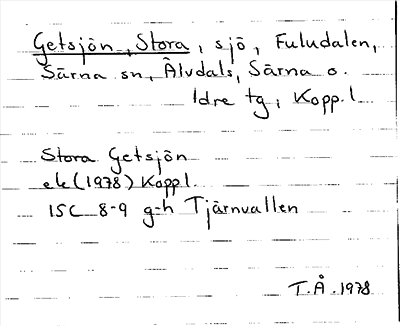 Getsjön, Stora, sjö, Fuludalen,
Särna sn, Älvdals, Särna o.
Idre tg, Kopp. l
Stora Getsjön
ek (1978) Kopp l.
15C 8-9 g-h Tjärnvallen
T.Å. 1978